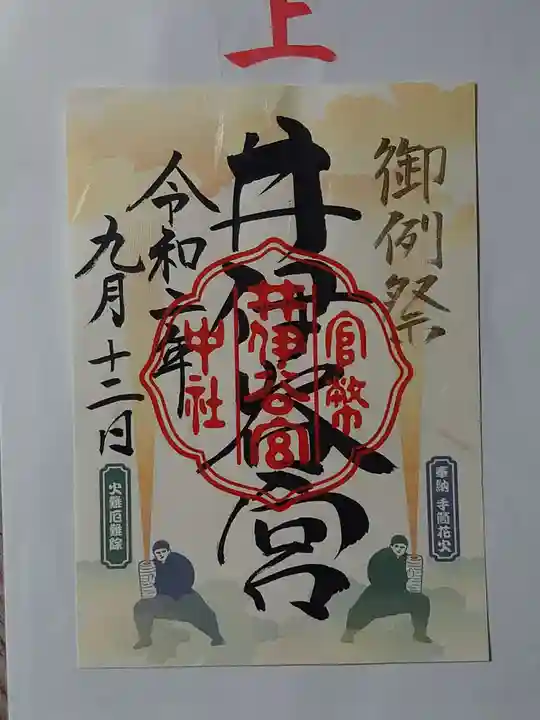 上
御例祭
井伊谷宮
令和二年
九月十二日
官幣
井伊谷宮
中社
奉納 手筒花火
火難厄難除